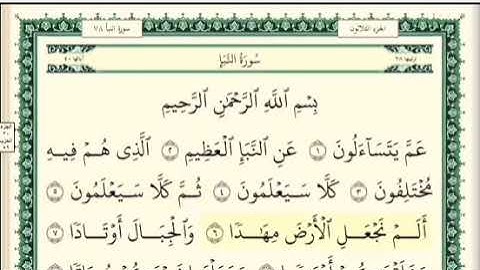 سورة النبأ ٧٨
الجزء الثلاثون
سُورَةُ النَّبَإِ
بِسْمِ اللَّهِ الرَّحْمَٰنِ الرَّحِيمِ
عَمَّ يَتَسَآءَلُونَ ١ عَنِ ٱلنَّبَإِ ٱلْعَظِيمِ ٢ ٱلَّذِى هُمْ فِيهِ
مُخْتَلِفُونَ ٣ كَلَّا سَيَعْلَمُونَ ٤ ثُمَّ كَلَّا سَيَعْلَمُونَ ٥
أَلَمْ نَجْعَلِ ٱلْأَرْضَ مِهَٰدًا ٦ وَٱلْجِبَالَ أَوْتَادًا ٧